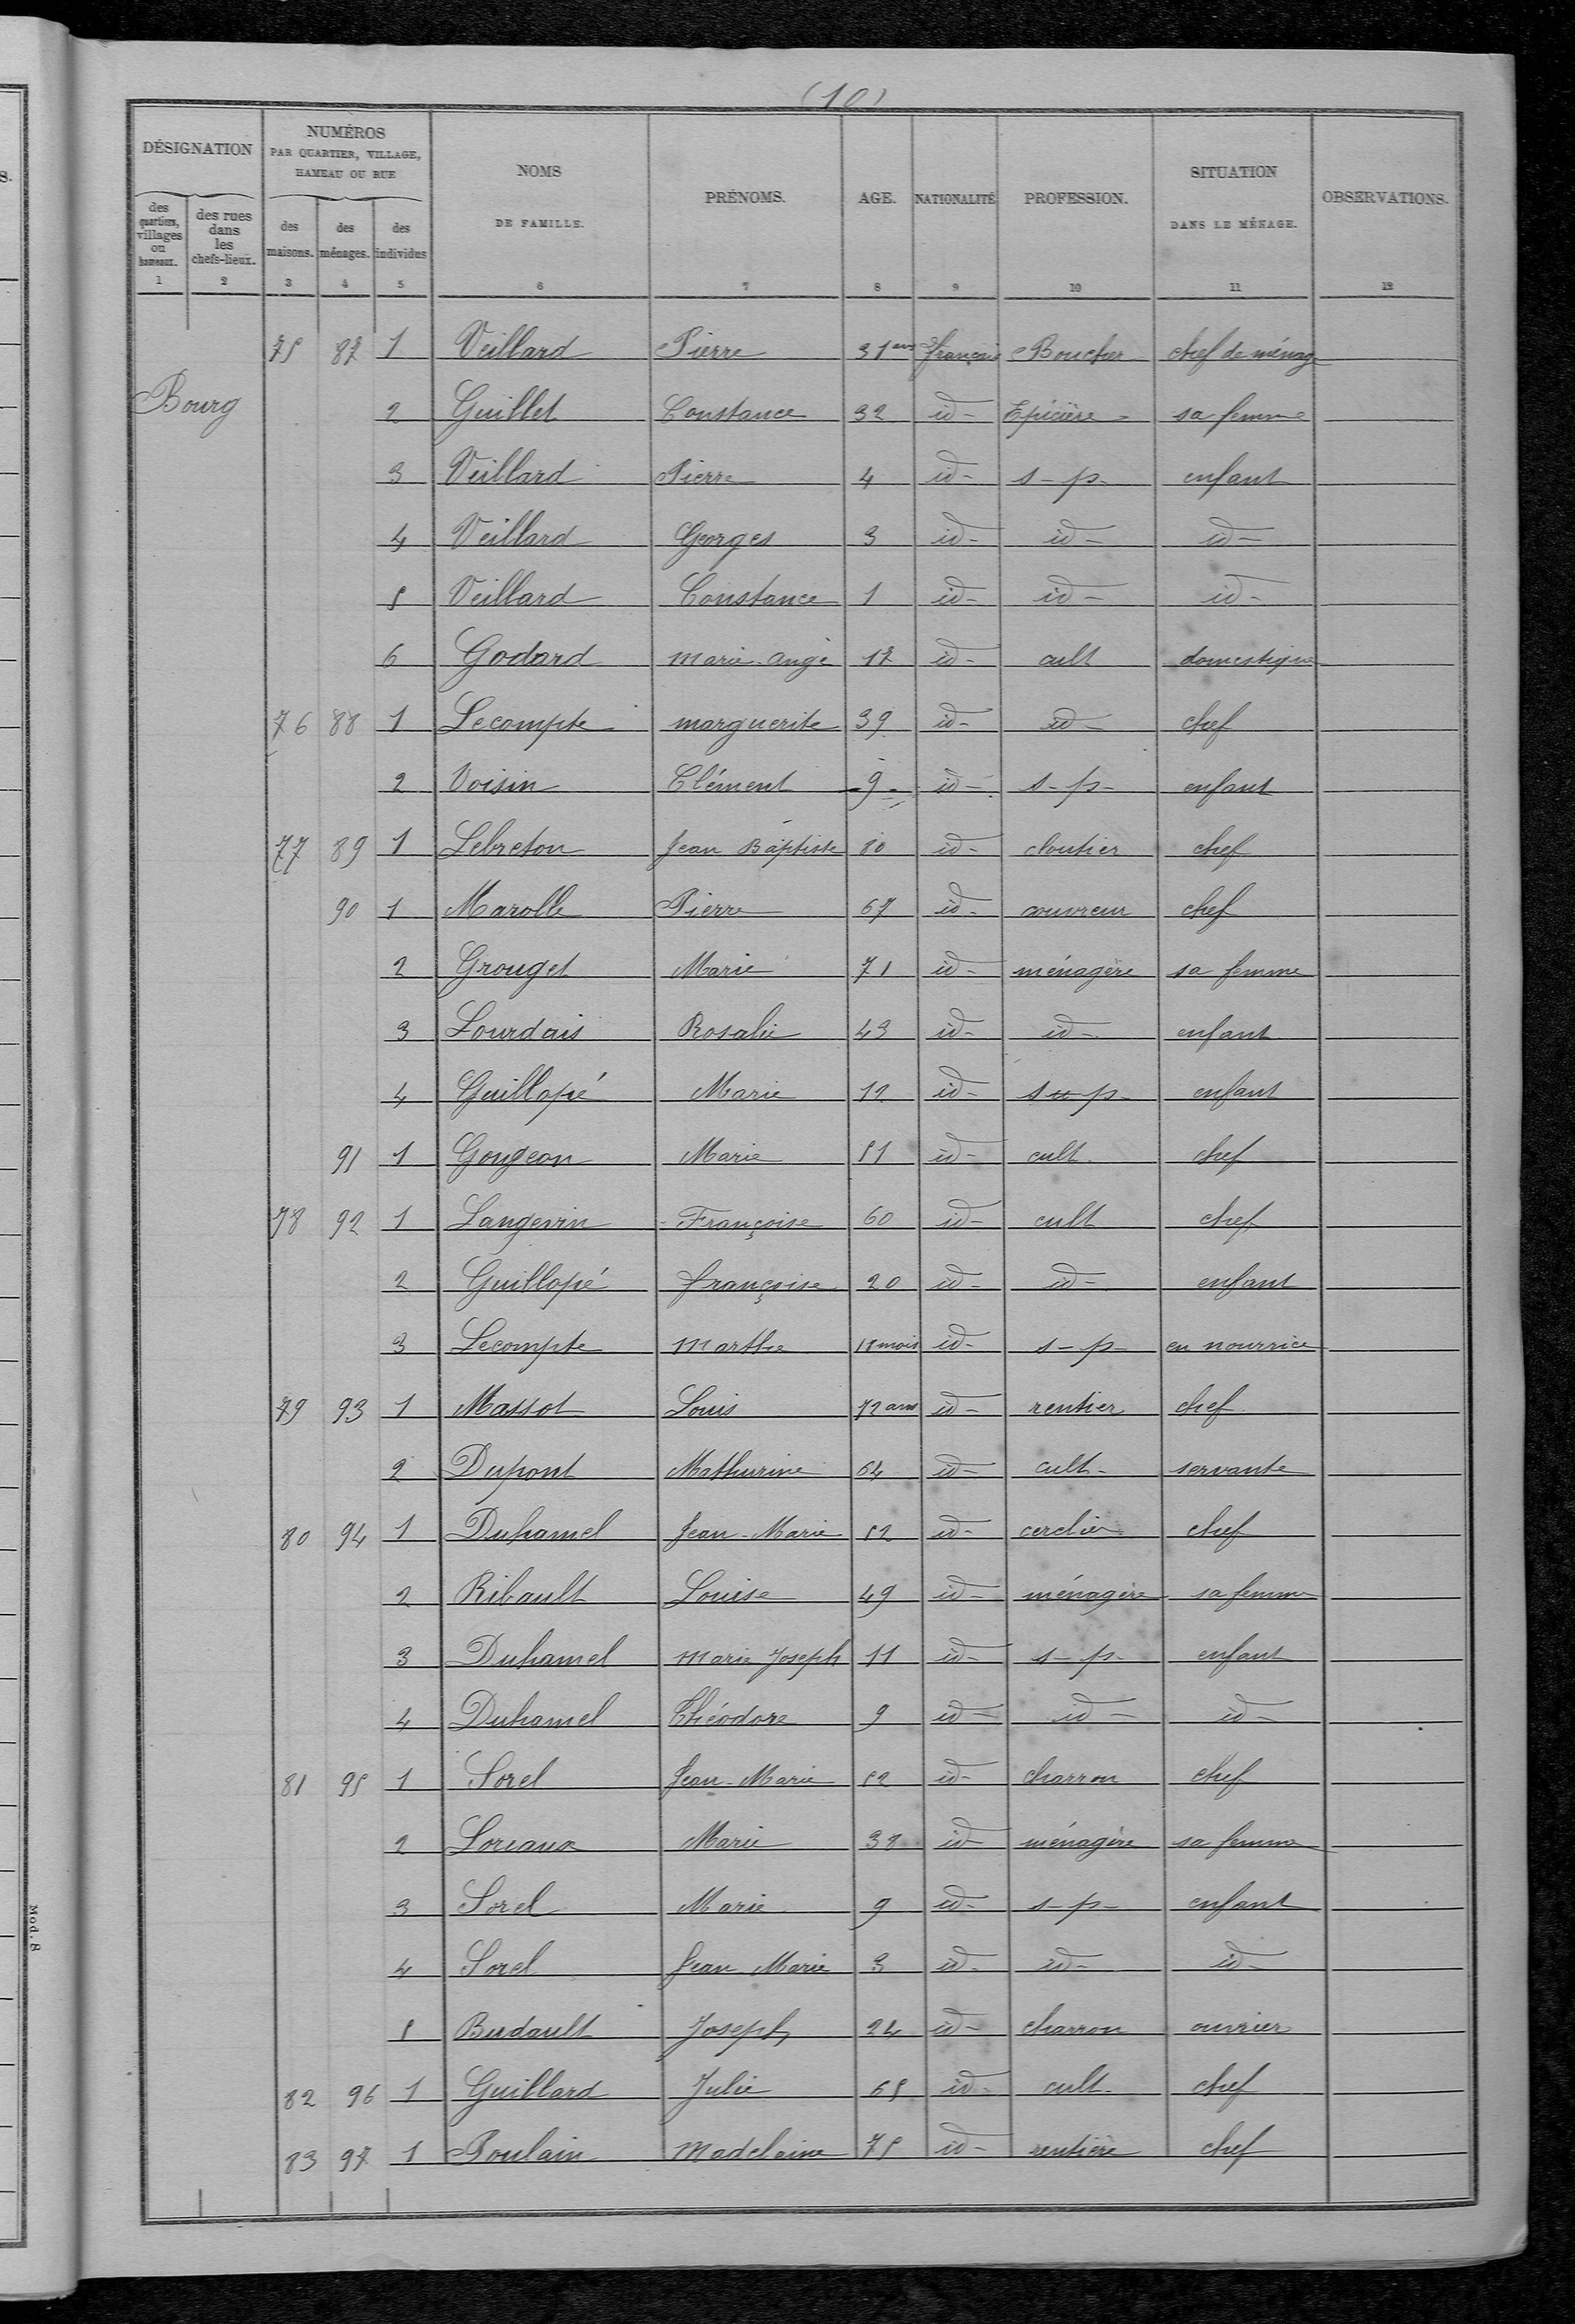 (10)
DÉSIGNATION NUMÉROS PAR QUARTIER, VILLAGE, HAMEAU OU RUE NOMS DE FAMILLE. PRÉNOMS. AGE. NATIONALITÉ PROFESSION. SITUATION DANS LE MÉNAGE. OBSERVATIONS.
des quartiers, villages ou hameaux. des rues dans les chefs-lieux. des maisons. des ménages. des individus
1 2 3 4 5 6 7 8 9 10 11 12
75 87 1 Veillard Pierre 31 ans français Boucher chef de ménage
Bourg 2 Guillet Constance 32 id- Epicière - sa femme
3 Veillard Pierre 4 id- s-p- enfant
4 Veillard Georges 3 id- id- id-
5 Veillard Constance 1 id- id- id-
6 Godard Marie-Ange 17 id- cult domestique
76 88 1 Lecompte marguerite 39 id- id- chef
2 Voisin Clément 9 id- s-p- enfant
77 89 1 Lebreton Jean Baptiste 80 id- cloutier chef
90 1 Marolle Pierre 67 id- couvreur chef
2 Grouget Marie 71 id- ménagère sa femme
3 Lourdais Rosalie 43 id- id- enfant
4 Guillopé Marie 12 id- s-p- enfant
91 1 Gougeon Marie 51 id- cult. chef
78 92 1 Langevin Françoise 60 id- cult chef
2 Guillopé françoise 20 id- id- enfant
3 Lecompte Marthe 18 mois id- s-p- en nourrice
79 93 1 Massot Louis 72 ans id- rentier chef
2 Dupont Mathurine 64 id- cult- servante
80 94 1 Duhamel Jean-Marie 52 id- cerclier chef
2 Ribault Louise 49 id- ménagère sa femme
3 Duhamel Marie Joseph 11 id- s-p- enfant
4 Duhamel Théodore 9 id- id- id-
81 95 1 Sorel Jean-Marie 52 id- charron chef
2 Loriaux Marie 38 id- ménagère sa femme
3 Sorel Marie 9 id- s-p- enfant
4 Sorel Jean Marie 3 id- id- id-
5 Budault Joseph 24 id- charron ouvrier
82 96 1 Guillard Julie 65 id- cult- chef
83 97 1 Poulain Madelaine 75 id- rentière chef
Mod. 8